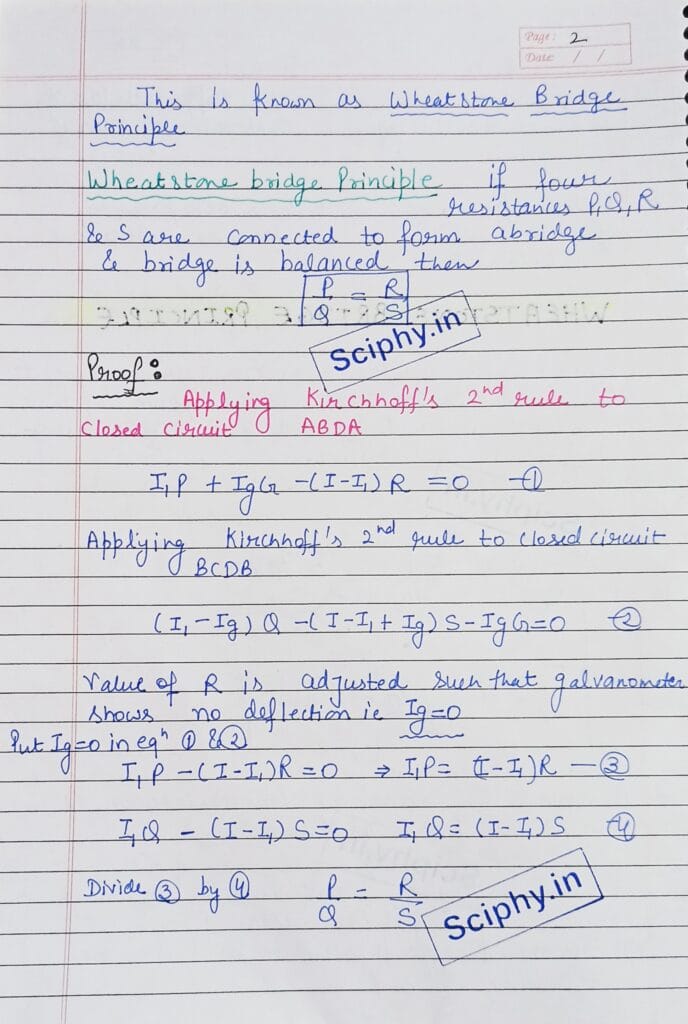 Page: 2
Date: / /
This is known as Wheatstone Bridge
Principle
Wheatstone bridge Principle if four
resistances P, Q, R
& S are connected to form abridge
& bridge is balanced then
P/Q = R/S
WHEATSTONE BRIDGE PRINCIPLE
Sciphy.in
Proof:
Applying Kirchhoff's 2nd rule to
closed circuit ABDA
I₁P + IgG -(I-I₁)R = 0 -①
Applying Kirchhoff's 2nd rule to closed circuit
BCDB
(I₁-Ig)Q -(I-I₁+Ig)S-IgG=0 -②
Value of R is adjusted such that galvanometer
shows no deflection ie Ig=0
Put Ig=0 in eqⁿ ① & ②
I₁P -(I-I₁)R = 0 ⇒ I₁P= (I-I₁)R -③
I₁Q - (I-I₁)S=0 I₁Q= (I-I₁)S -④
Divide ③ by ④ P/Q = R/S
Sciphy.in